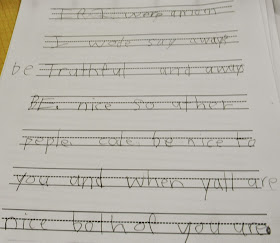 I wode say aways
be Truthful and away
BE. nice so other
peple. cole. be nice to
you and when yall are
nice both of you are.